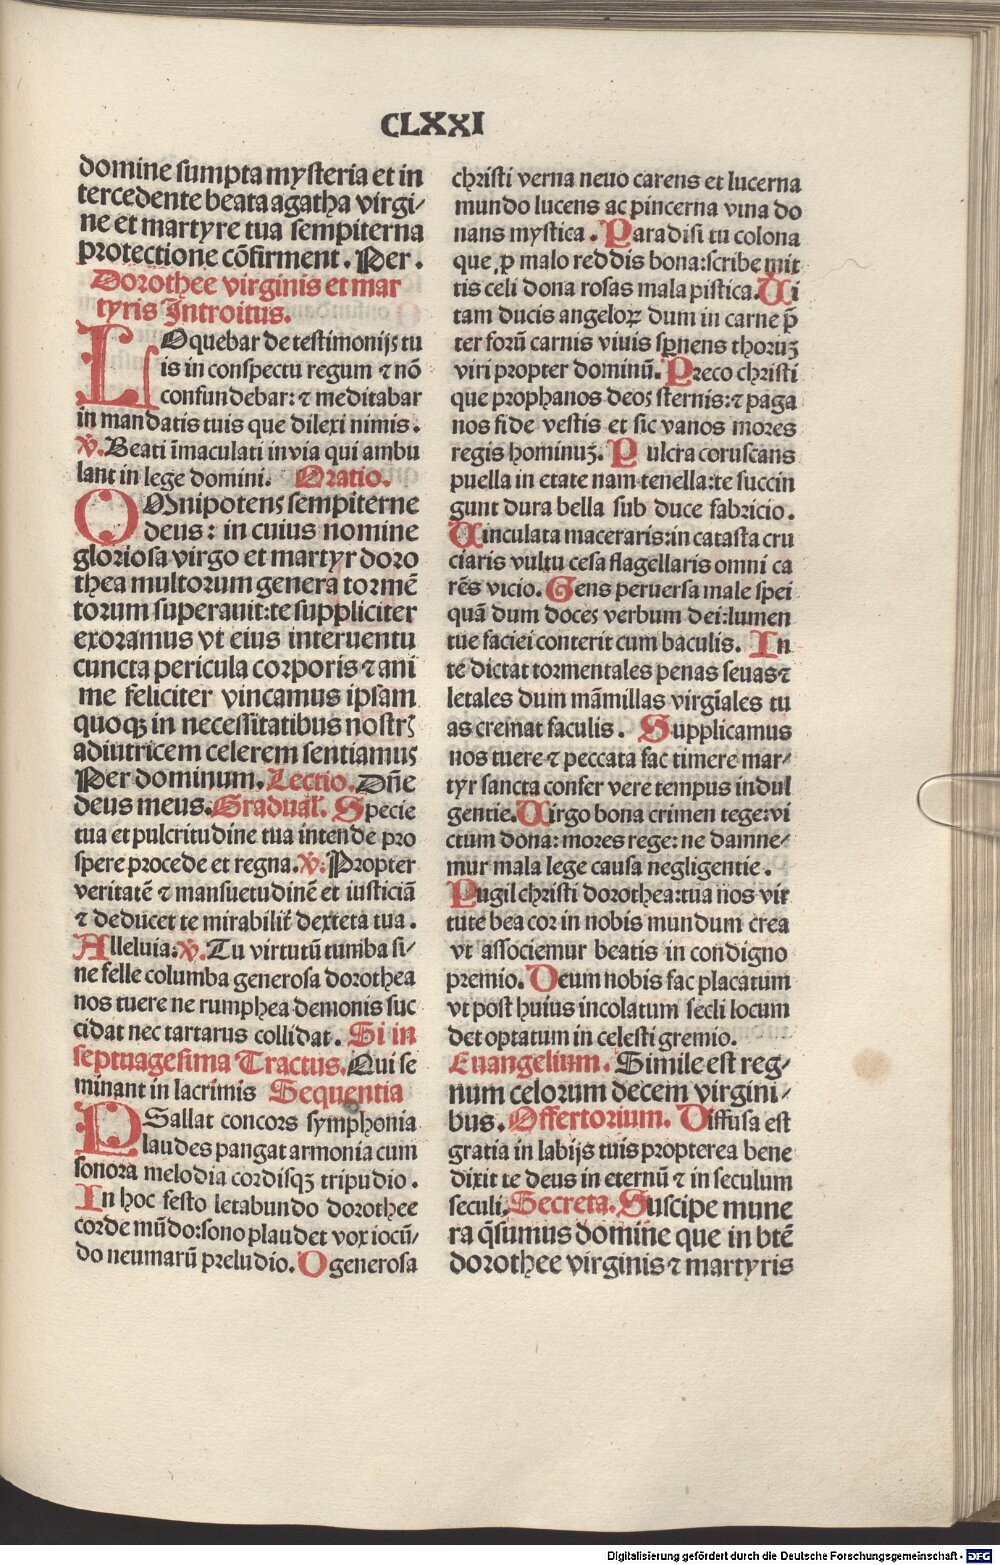 CLXXI
domine sumpta mysteria et in
tercedente beata agatha virgi⸗
ne et martyre tua sempiterna
protectione cōfirment. Per.
Dorothee virginis et mar
tyris Introitus.
LOquebar de testimonijs tu
is in conspectu regum ⁊ nō
confundebar: ⁊ meditabar
in mandatis tuis que dilexi nimis.
℣. Beati īmaculati in via qui ambu
lant in lege domini. Oratio.
OMnipotens sempiterne
deus: in cuius nomine
gloriosa virgo et martyr doro
thea multorum genera tormē
torum superauit: te suppliciter
exoramus vt eius interuentu
cuncta pericula corporis ⁊ ani
me feliciter vincamus ipsam
quoqꝫ in necessitatibus nostrꝭ
adiutricem celerem sentiamus
Per dominum. Lectio. Dñe
deus meus. Gradual'. Specie
tua et pulcritudine tua intende pro
spere procede et regna. ℣. Propter
veritatē ⁊ mansuetudinē et iusticiā
⁊ deducet te mirabilit' dexteta tua.
Alleluia: ℣. Tu virtutū tumba si⸗
ne felle columba generosa dorothea
nos tuere ne rumphea demonis suc
cidat nec tartarus collidat. Si in
septuagesima Tractus. Qui se
minant in lacrimis Sequentia
PSallat concors symphonia
laudes pangat armonia cum
sonora melodia cordisqꝫ tripudio.
In hoc festo letabundo dorothee
corde mūdo: sono plaudet vox iocū⸗
do neumarū preludio. O generosa
christi verna neuo carens et lucerna
mundo lucens ac pincerna vina do
nans mystica. Paradisi tu colona
que ꝓ malo reddis bona: scribe mit
tis celi dona rosas mala pistica. Ui
tam ducis angeloꝝ dum in carne p̄
ter forū carnis viuis spnens thoruꝫ
viri propter dominū. Preco christi
que prophanos deos sternis: ⁊ paga
nos fide vestis et sic vanos mores
regis hominuꝫ. Pulcra coruscans
puella in etate nam tenella: te succin
gunt dura bella sub duce fabricio.
Uinculata maceraris: in catasta cru
ciaris vultu cesa flagellaris omni ca
rēs vicio. Gens peruersa male spei
quā dum doces verbum dei: lumen
tue faciei conterit cum baculis. In
te dictat tormentales penas seuas ⁊
letales dum māmillas virgīales tu
as cremat faculis. Supplicamus
nos tuere ⁊ peccata fac timere mar⸗
tyr sancta confer vere tempus indul
gentie. Uirgo bona crimen tege: vi
ctum dona: mores rege: ne damne⸗
mur mala lege causa negligentie.
Pugil christi dorothea: tua nos vir
tute bea cor in nobis mundum crea
vt associemur beatis in condigno
premio. Deum nobis fac placatum
vt post huius incolatum secli locum
det optatum in celesti gremio.
Euangelium. Simile est reg⸗
num celorum decem virgini⸗
bus. Offertorium. Diffusa est
gratia in labijs tuis propterea bene
dixit te deus in eternū ⁊ in seculum
seculi. Secreta. Suscipe mune
ra q̄sumus domine que in btē
dorothee virginis ⁊ martyris
Digitalisierung gefördert durch die Deutsche Forschungsgemeinschaft - DFG